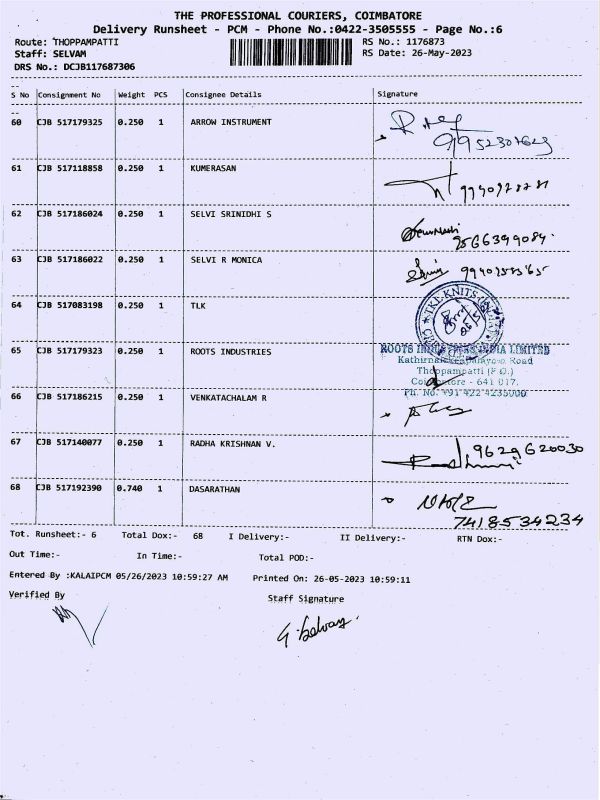 THE PROFESSIONAL COURIERS, COIMBATORE
Delivery Runsheet - PCM - Phone No.:0422-3505555 - Page No.:6
Route: THOPPAMPATTI RS No.: 1176873
Staff: SELVAM RS Date: 26-May-2023
DRS No.: DCJB117687306
S No Consignment No Weight PCS Consignee Details Signature
60 CJB 517179325 0.250 1 ARROW INSTRUMENT
61 CJB 517118858 0.250 1 KUMERASAN
62 CJB 517186024 0.250 1 SELVI SRINIDHI S
9566399084.
63 CJB 517186022 0.250 1 SELVI R MONICA
64 CJB 517083198 0.250 1 TLK
TKL KNITS
65 CJB 517179323 0.250 1 ROOTS INDUSTRIES
ROOTS INDUSTRIES INDIA LIMITED
Road
Thoppampatti (P.O.)
Coimbatore - 641 017.
Ph. No. +91 422 4235000
66 CJB 517186215 0.250 1 VENKATACHALAM R
67 CJB 517140077 0.250 1 RADHA KRISHNAN V.
9629620030
68 CJB 517192390 0.740 1 DASARATHAN
7418534234
Tot. Runsheet:- 6 Total Dox:- 68 I Delivery:- II Delivery:- RTN Dox:-
Out Time:- In Time:- Total POD:-
Entered By :KALAIPCM 05/26/2023 10:59:27 AM Printed On: 26-05-2023 10:59:11
Verified By Staff Signature
G. Selvam.